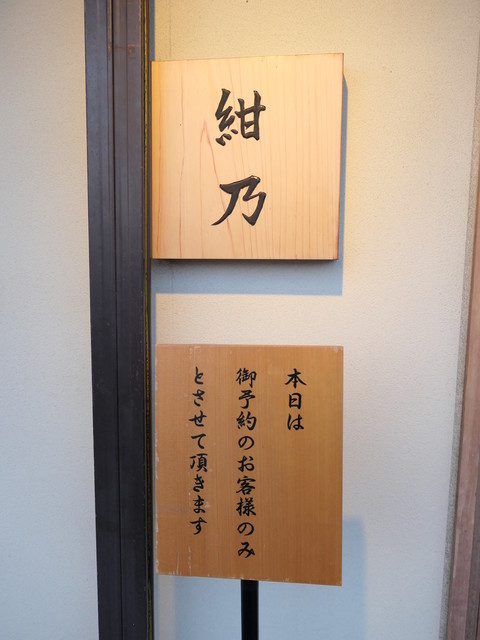 紺乃
本日は
御予約のお客様のみ
とさせて頂きます